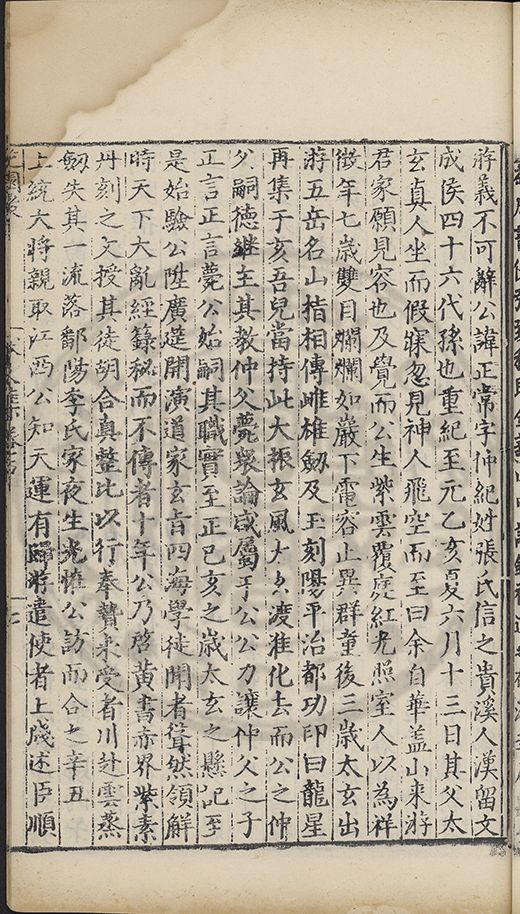 游義不可辭公諱正常字仲紀姓張氏信之貴溪人漢留文
成侯四十六代孫也重紀至元乙亥夏六月十三日其父太
玄真人坐而假寐忽見神人飛空而至曰余自華蓋山來游
君家願見容也及覺而公生紫雲覆庭紅光照室人以為祥
徵年七歲雙目爛爛如巖下電容止異群童後三歲太玄出
游五岳名山指相傳雌雄劔及玉刻陽平治都功印曰龍星
再集于亥吾兒當持此大振玄風太玄渡淮化去而公之仲
父嗣德繼主其教仲父薨衆論咸屬于公公力讓仲父之子
正言正言薨公始嗣其職實至正己亥之歲太玄之懸記至
是始驗公陞廣筵開演道家玄旨四海學徒聞者聳然領解
時天下大亂經籙秘而不傳者十年公乃啓黃書赤界紫素
丹刻之文授其徒胡合真整比以行奉贄來受者川赴雲蒸
劔失其一流落鄱陽李氏家夜生光恠公訪而合之辛丑
上統大將親取江西公知天運有歸游遣使者上牋述臣順